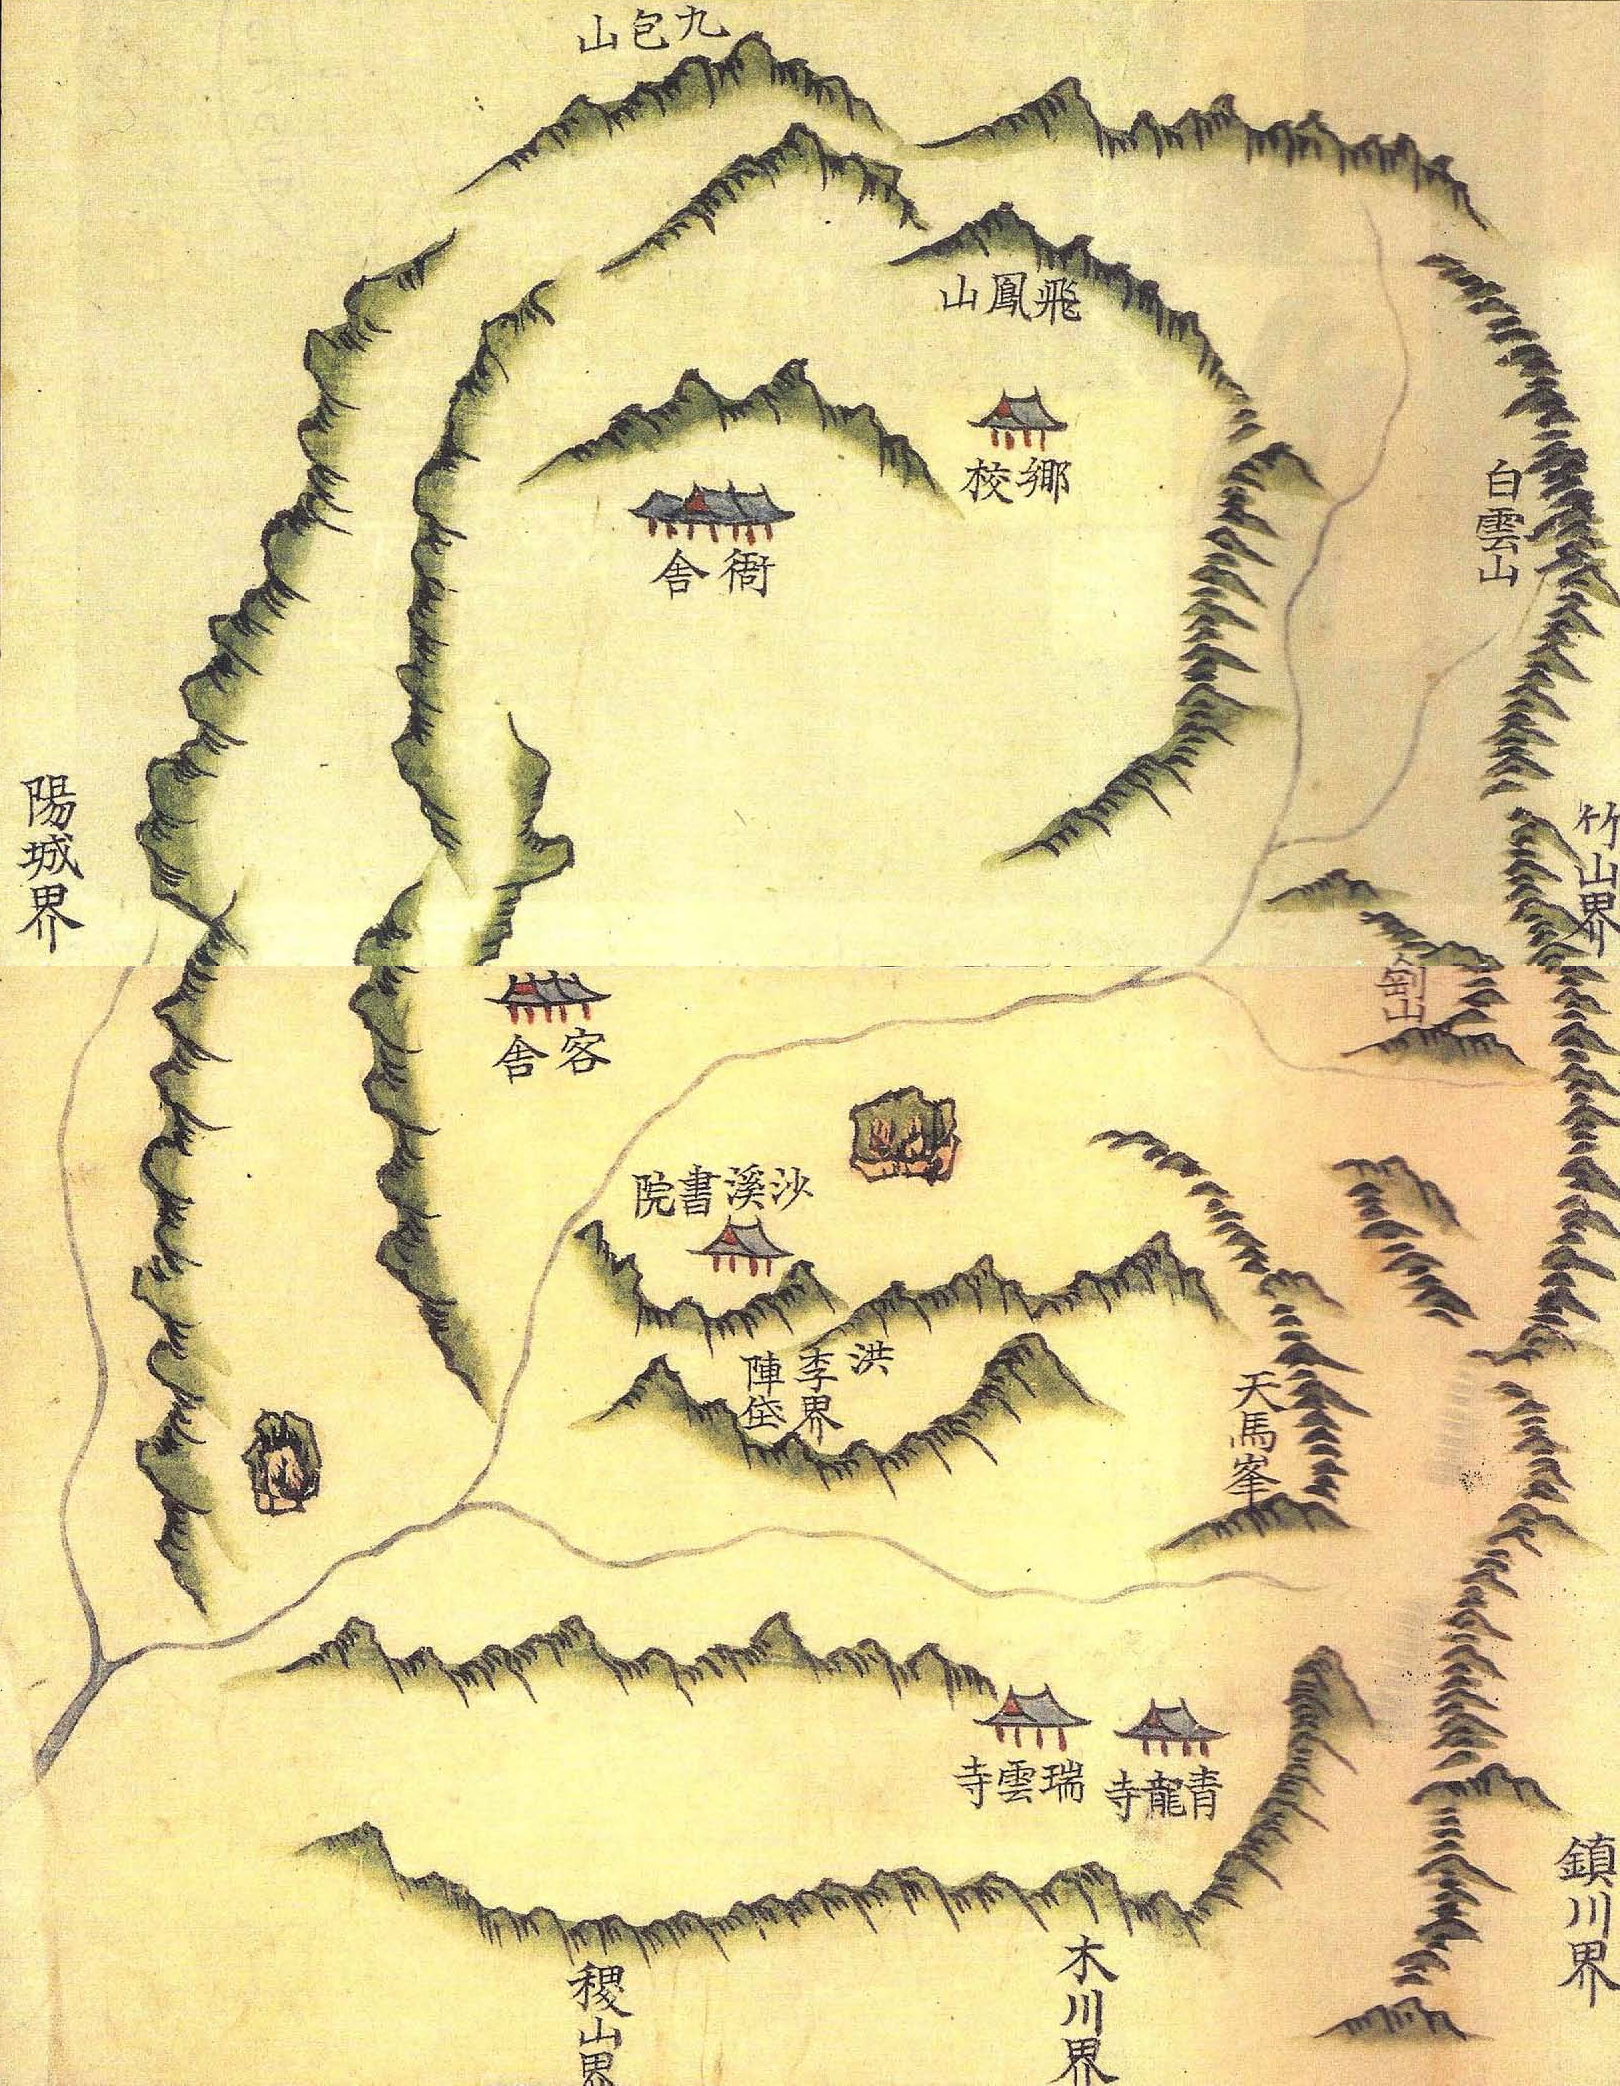 九包山
飛鳳山
鄕校
衙舍
白雲山
陽城界
竹山界
山
客舍
沙溪書院
洪
李界
陣垈
天馬峯
青龍寺
瑞雲寺
鎭川界
木川界
稷山界